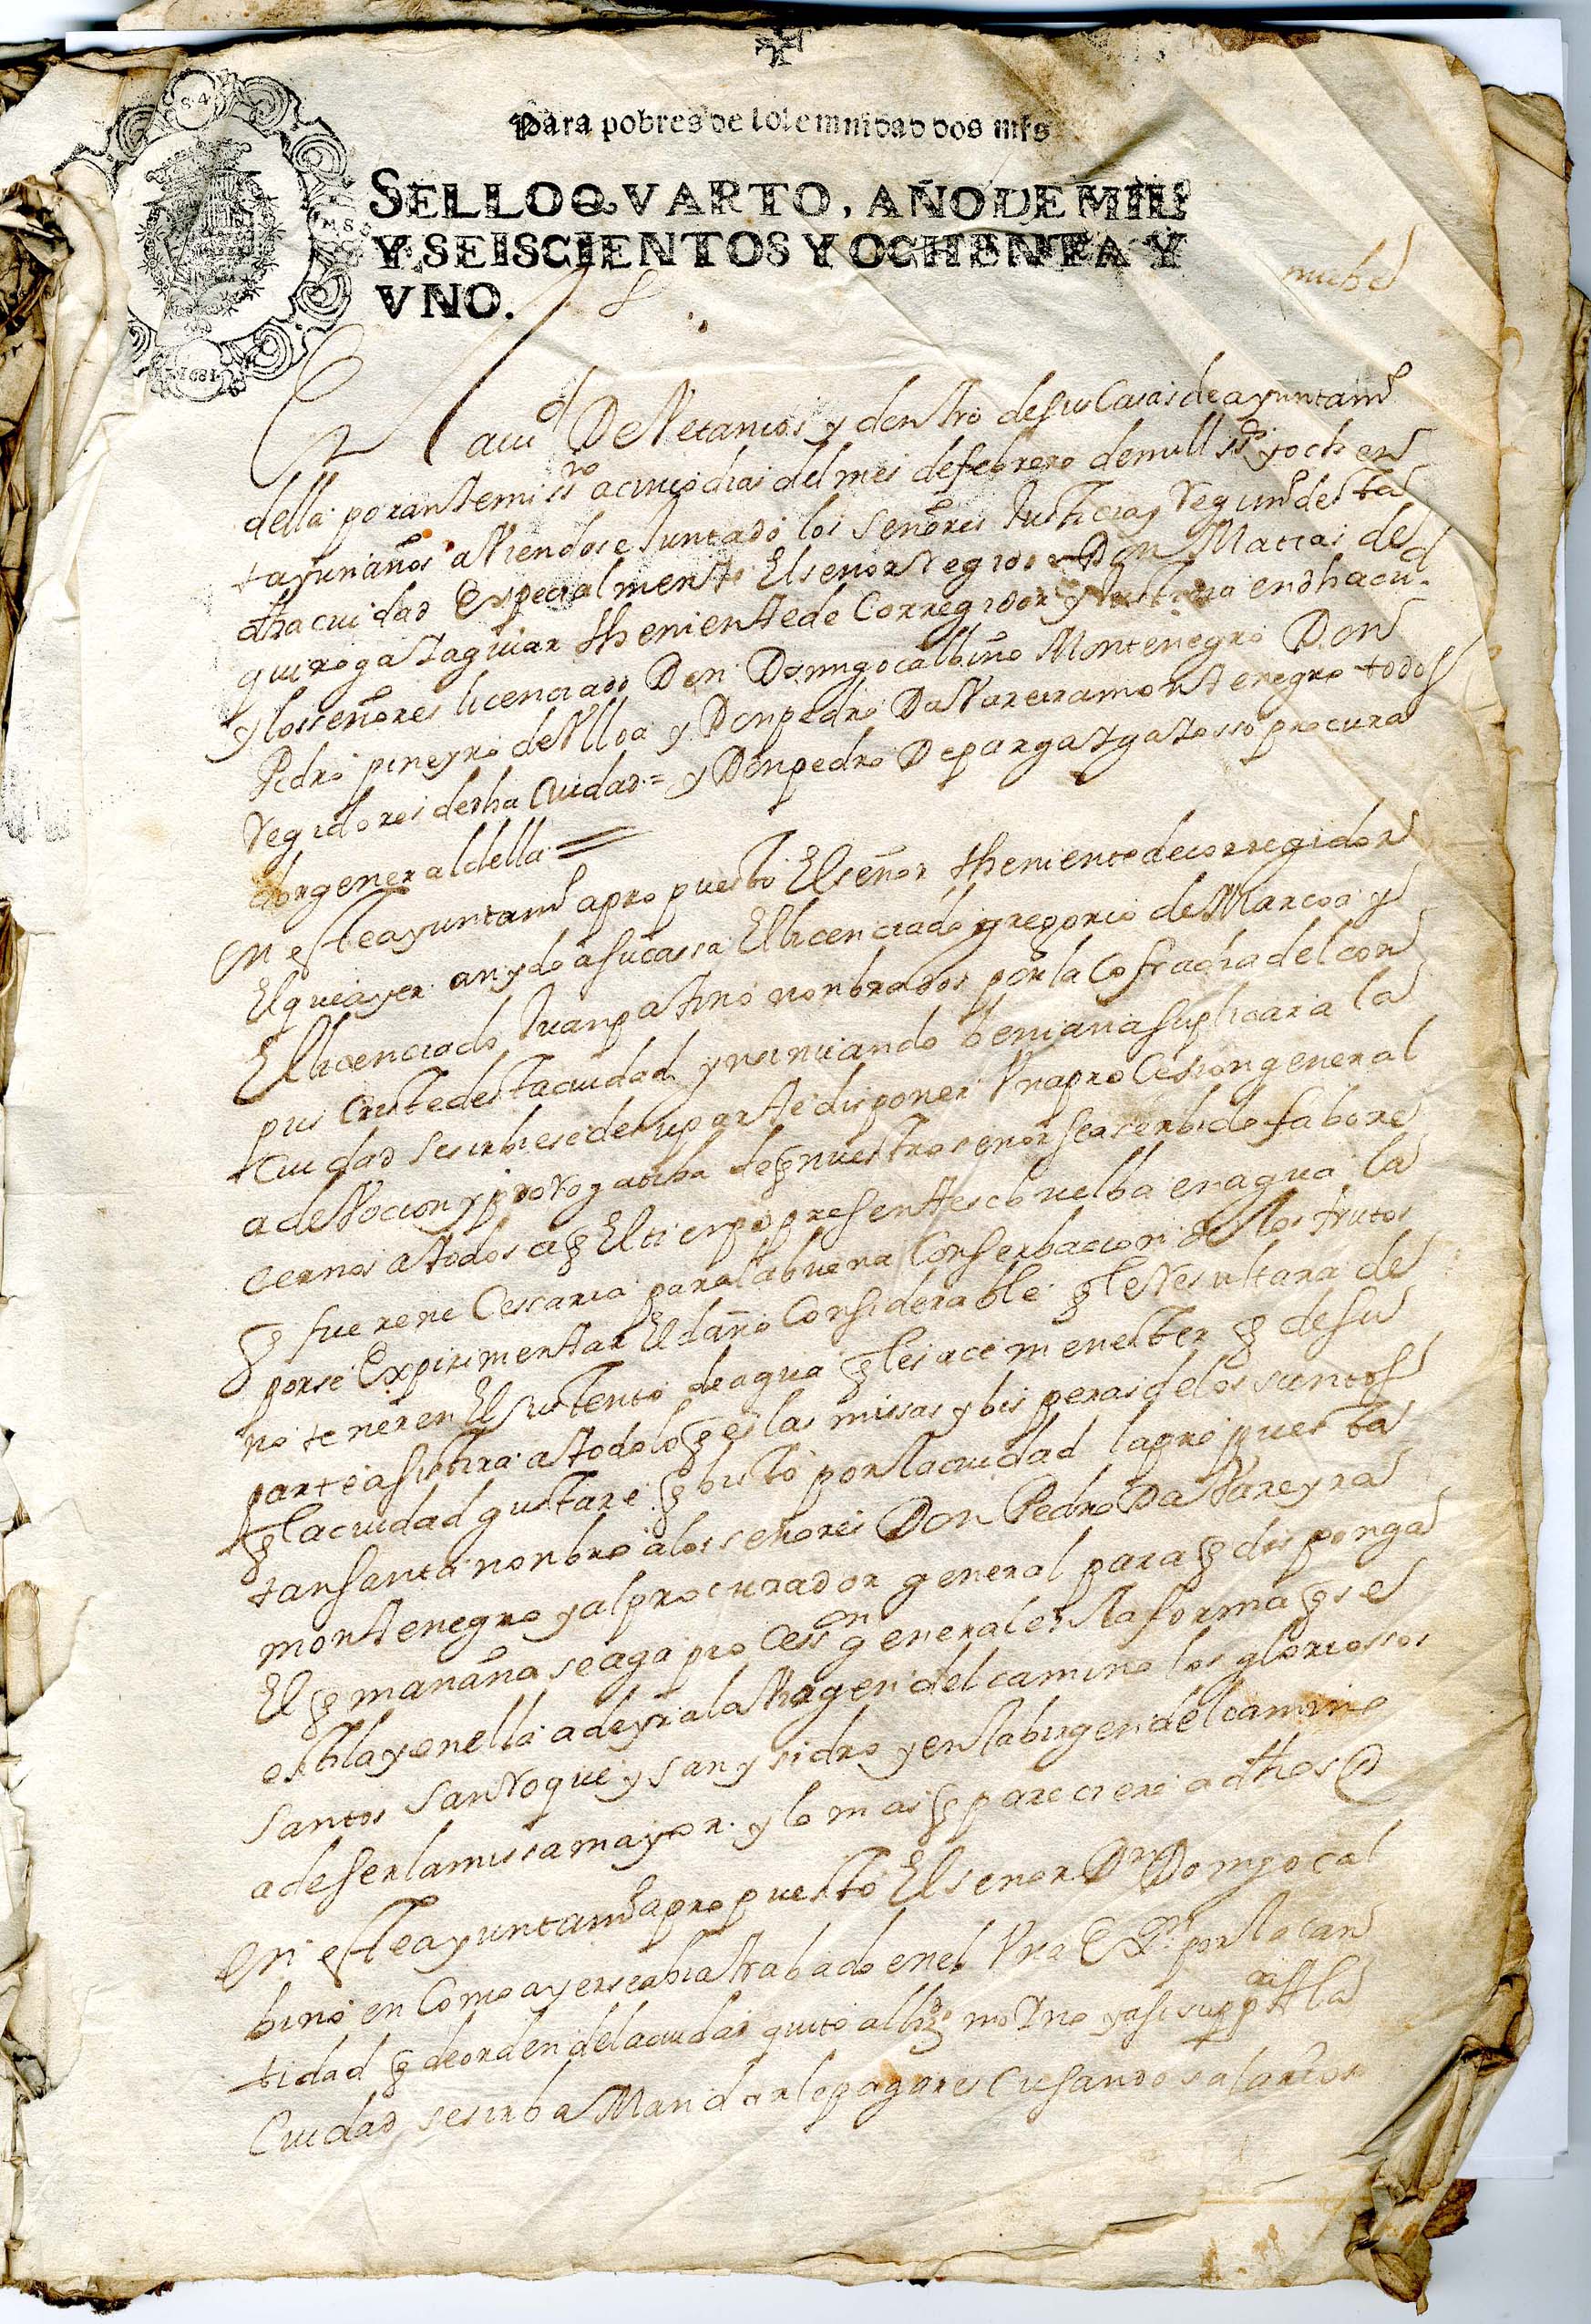 Para pobres de solemnidad dos mrs
SELLO QVARTO, AÑO DE MIL
Y SEISCIENTOS Y OCHENTA Y
VNO.
1681
nuebe
En la ciud De Vetanços y dentro de sus Casas de ayuntamo
della por ante mi ssno a cinco dias del mes de febrero de mill sso y ochen
ta y un años aviendose Juntado los señores Justicia y Regimo desta
dha ciudad Especialmente El señor Regidor Don Matias de
quiroga taguiar theniente de Corregidor y Justicia en dha ciud
y los señores licenciado Don Domingo calbino Montenegro Don
Pedro pineyro de Vlloa y Don pedro Da Vareira montenegro todos
Regidores de dha Ciudad = y Don pedro De parga procura
dor general della =
En este ayuntamo a propuesto El señor theniente de corregidor
El que ayer an ydo a su cassa El licenciado gregorio de Marcoa y
El licenciado Juan patino nonbrados por la Cofradia del cor
pus Criste desta ciudad y benian a suplicar a la
Ciudad se sirbiese de su parte disponer Vna proCesion general
a deVocion y Rogatiba de q nuestro senor sea serbido fabore
cernos a todos a q El tienpo presente se buelba en agua la
q fuere neCesaria para la buena Conserbacion de los frutos
por se Expirimentar El daño Considerable q le Resultara de
no tener en El sustento de agua q les ace menester q de su
parte asistira a todo lo q es las missas y bisperas de los santos
q la ciudad gustare q bisto por la ciudad la propuesta
tan santa nonbro a los señores Don Pedro Da Vareyra
montenegro y al procurador general para q disponga
El q manana se aga proCessn general en la forma q se
estila y en ella a de yr a la Virgen del camino los gloriossos
santos san Roque y san ysidro y en la birgen del camino
a de ser la missa mayor. y lo mas q pareciere a dhos
en este ayuntamo a propuesto El senor Dn Domigo cal
bino en Como ayer se abia trabado en el Vna Exon por la can
tidad q de orden de la ciudad quito al y asi suppca A la
Ciudad se sirba Mandarle pagar escusando salarios